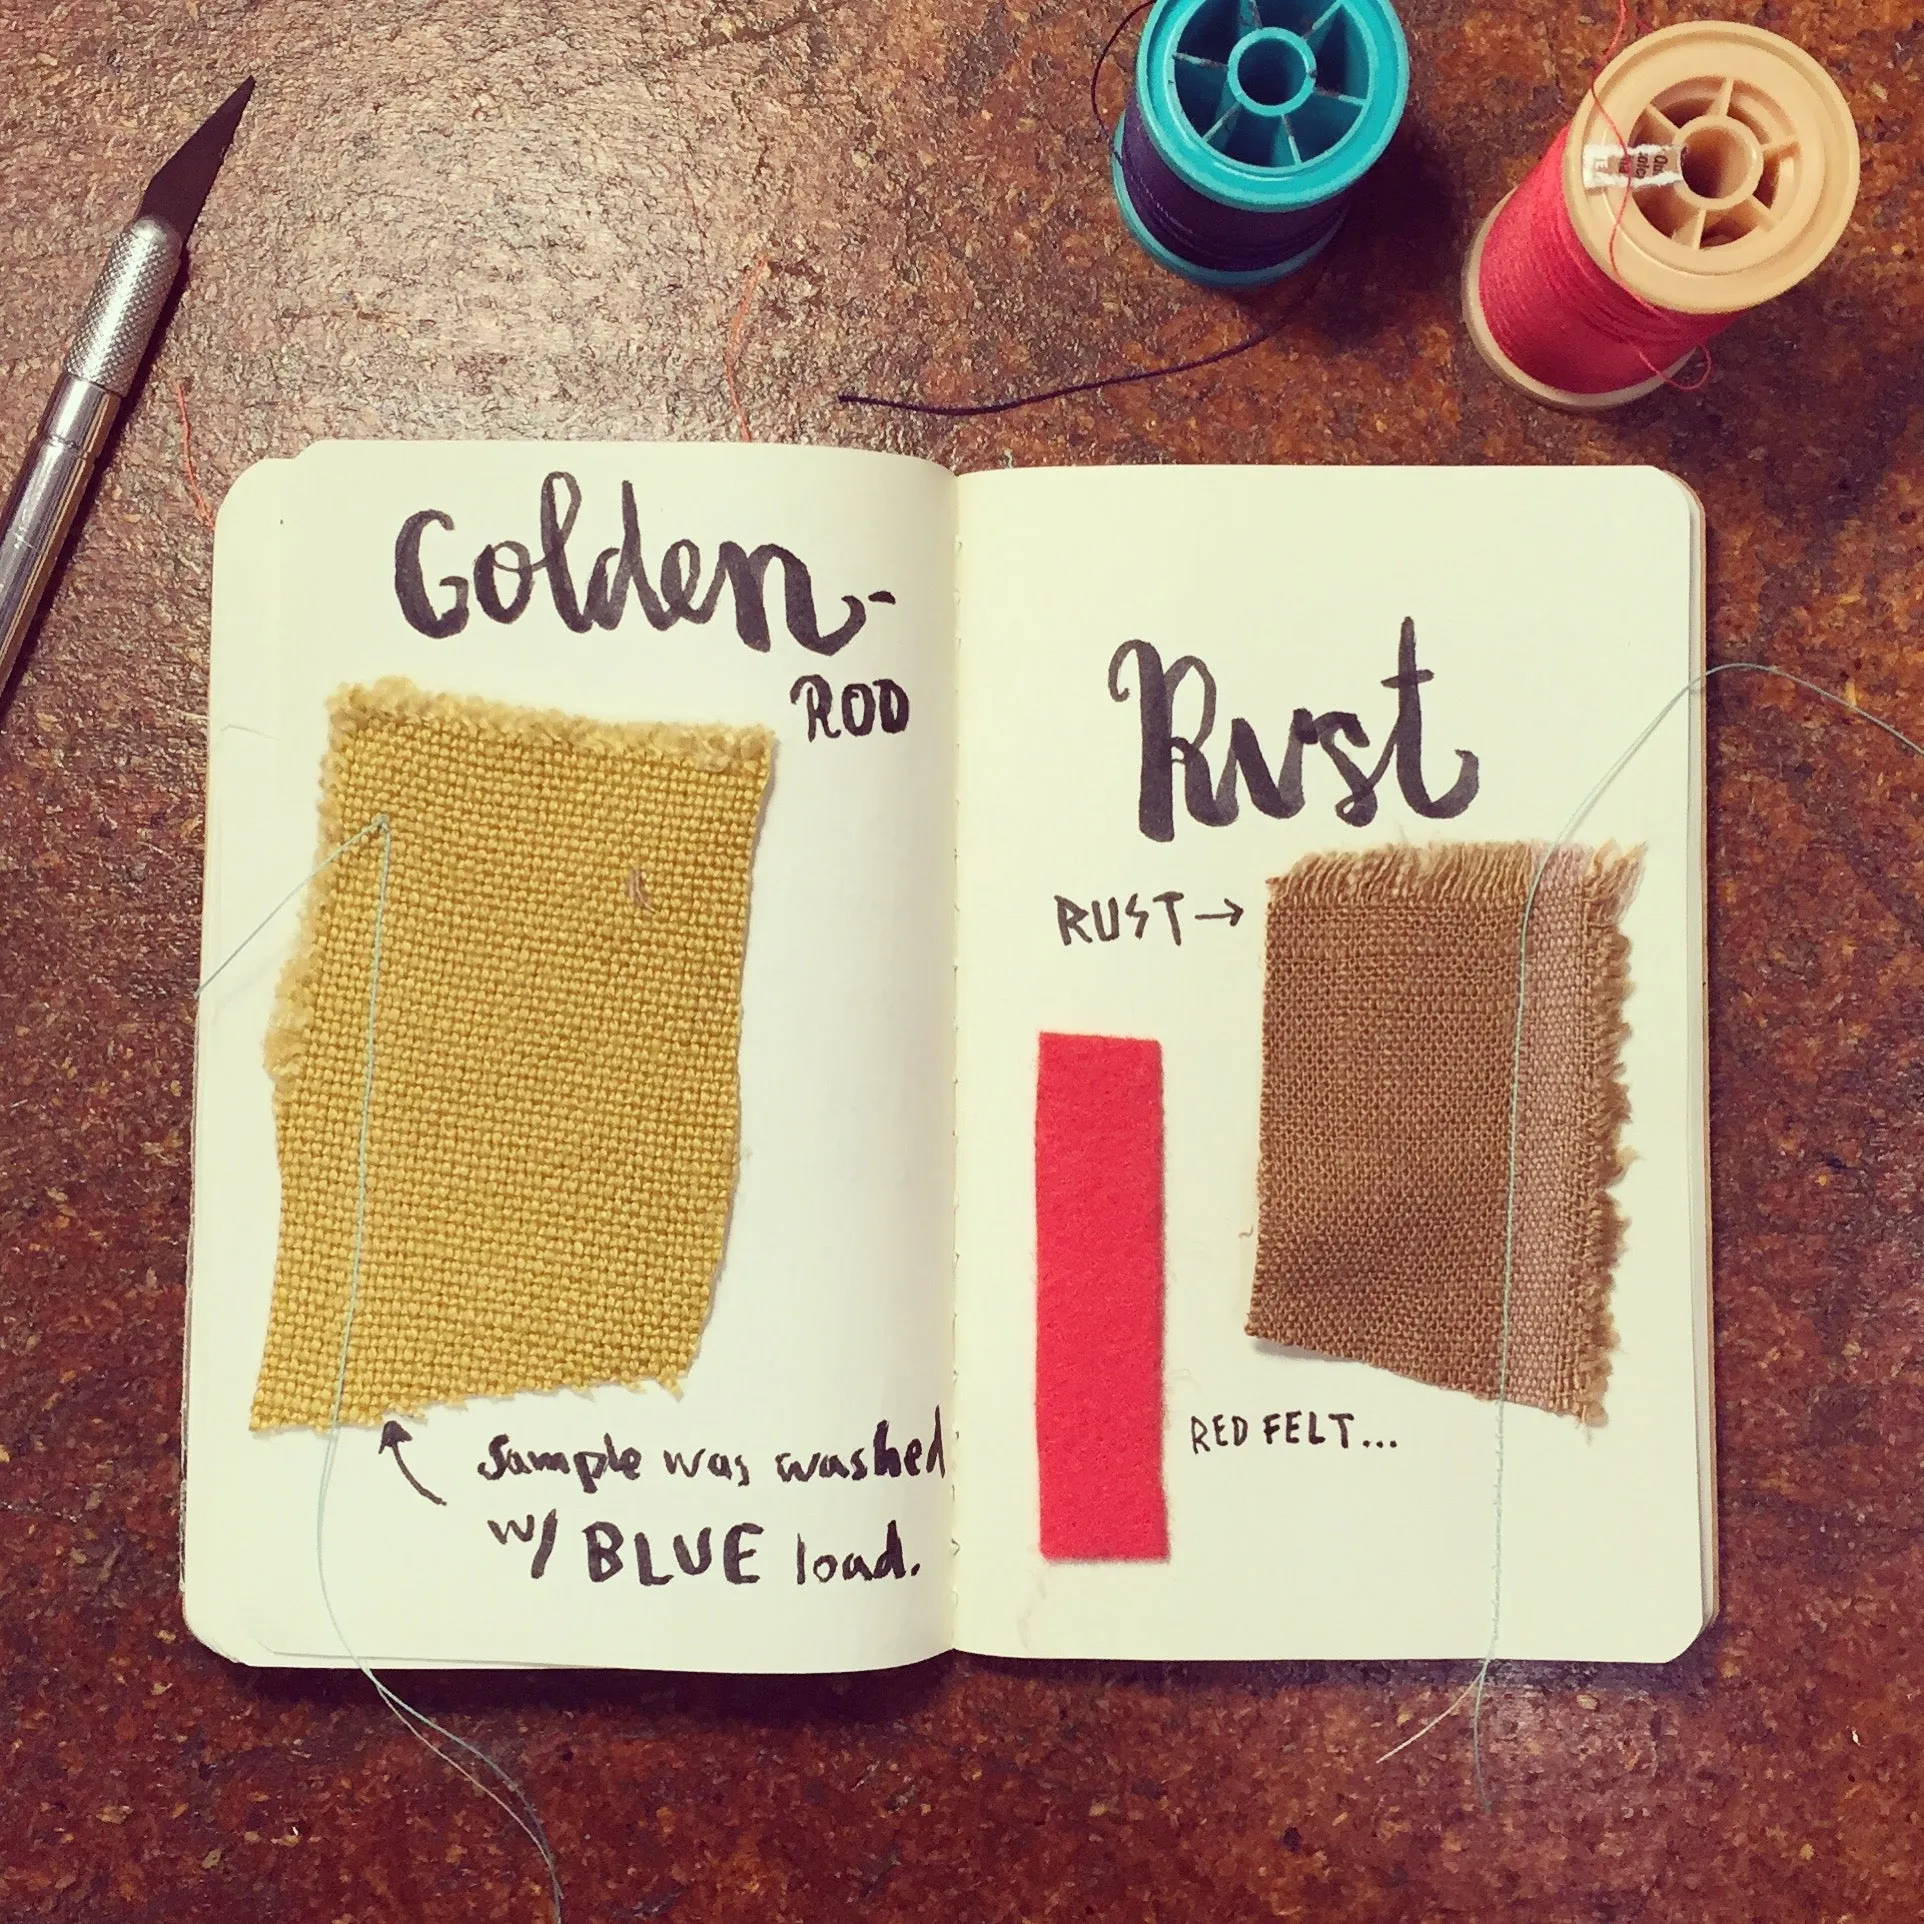 Golden-
ROD
Sample was washed
w/ BLUE load.
Rust
RUST→
RED FELT...